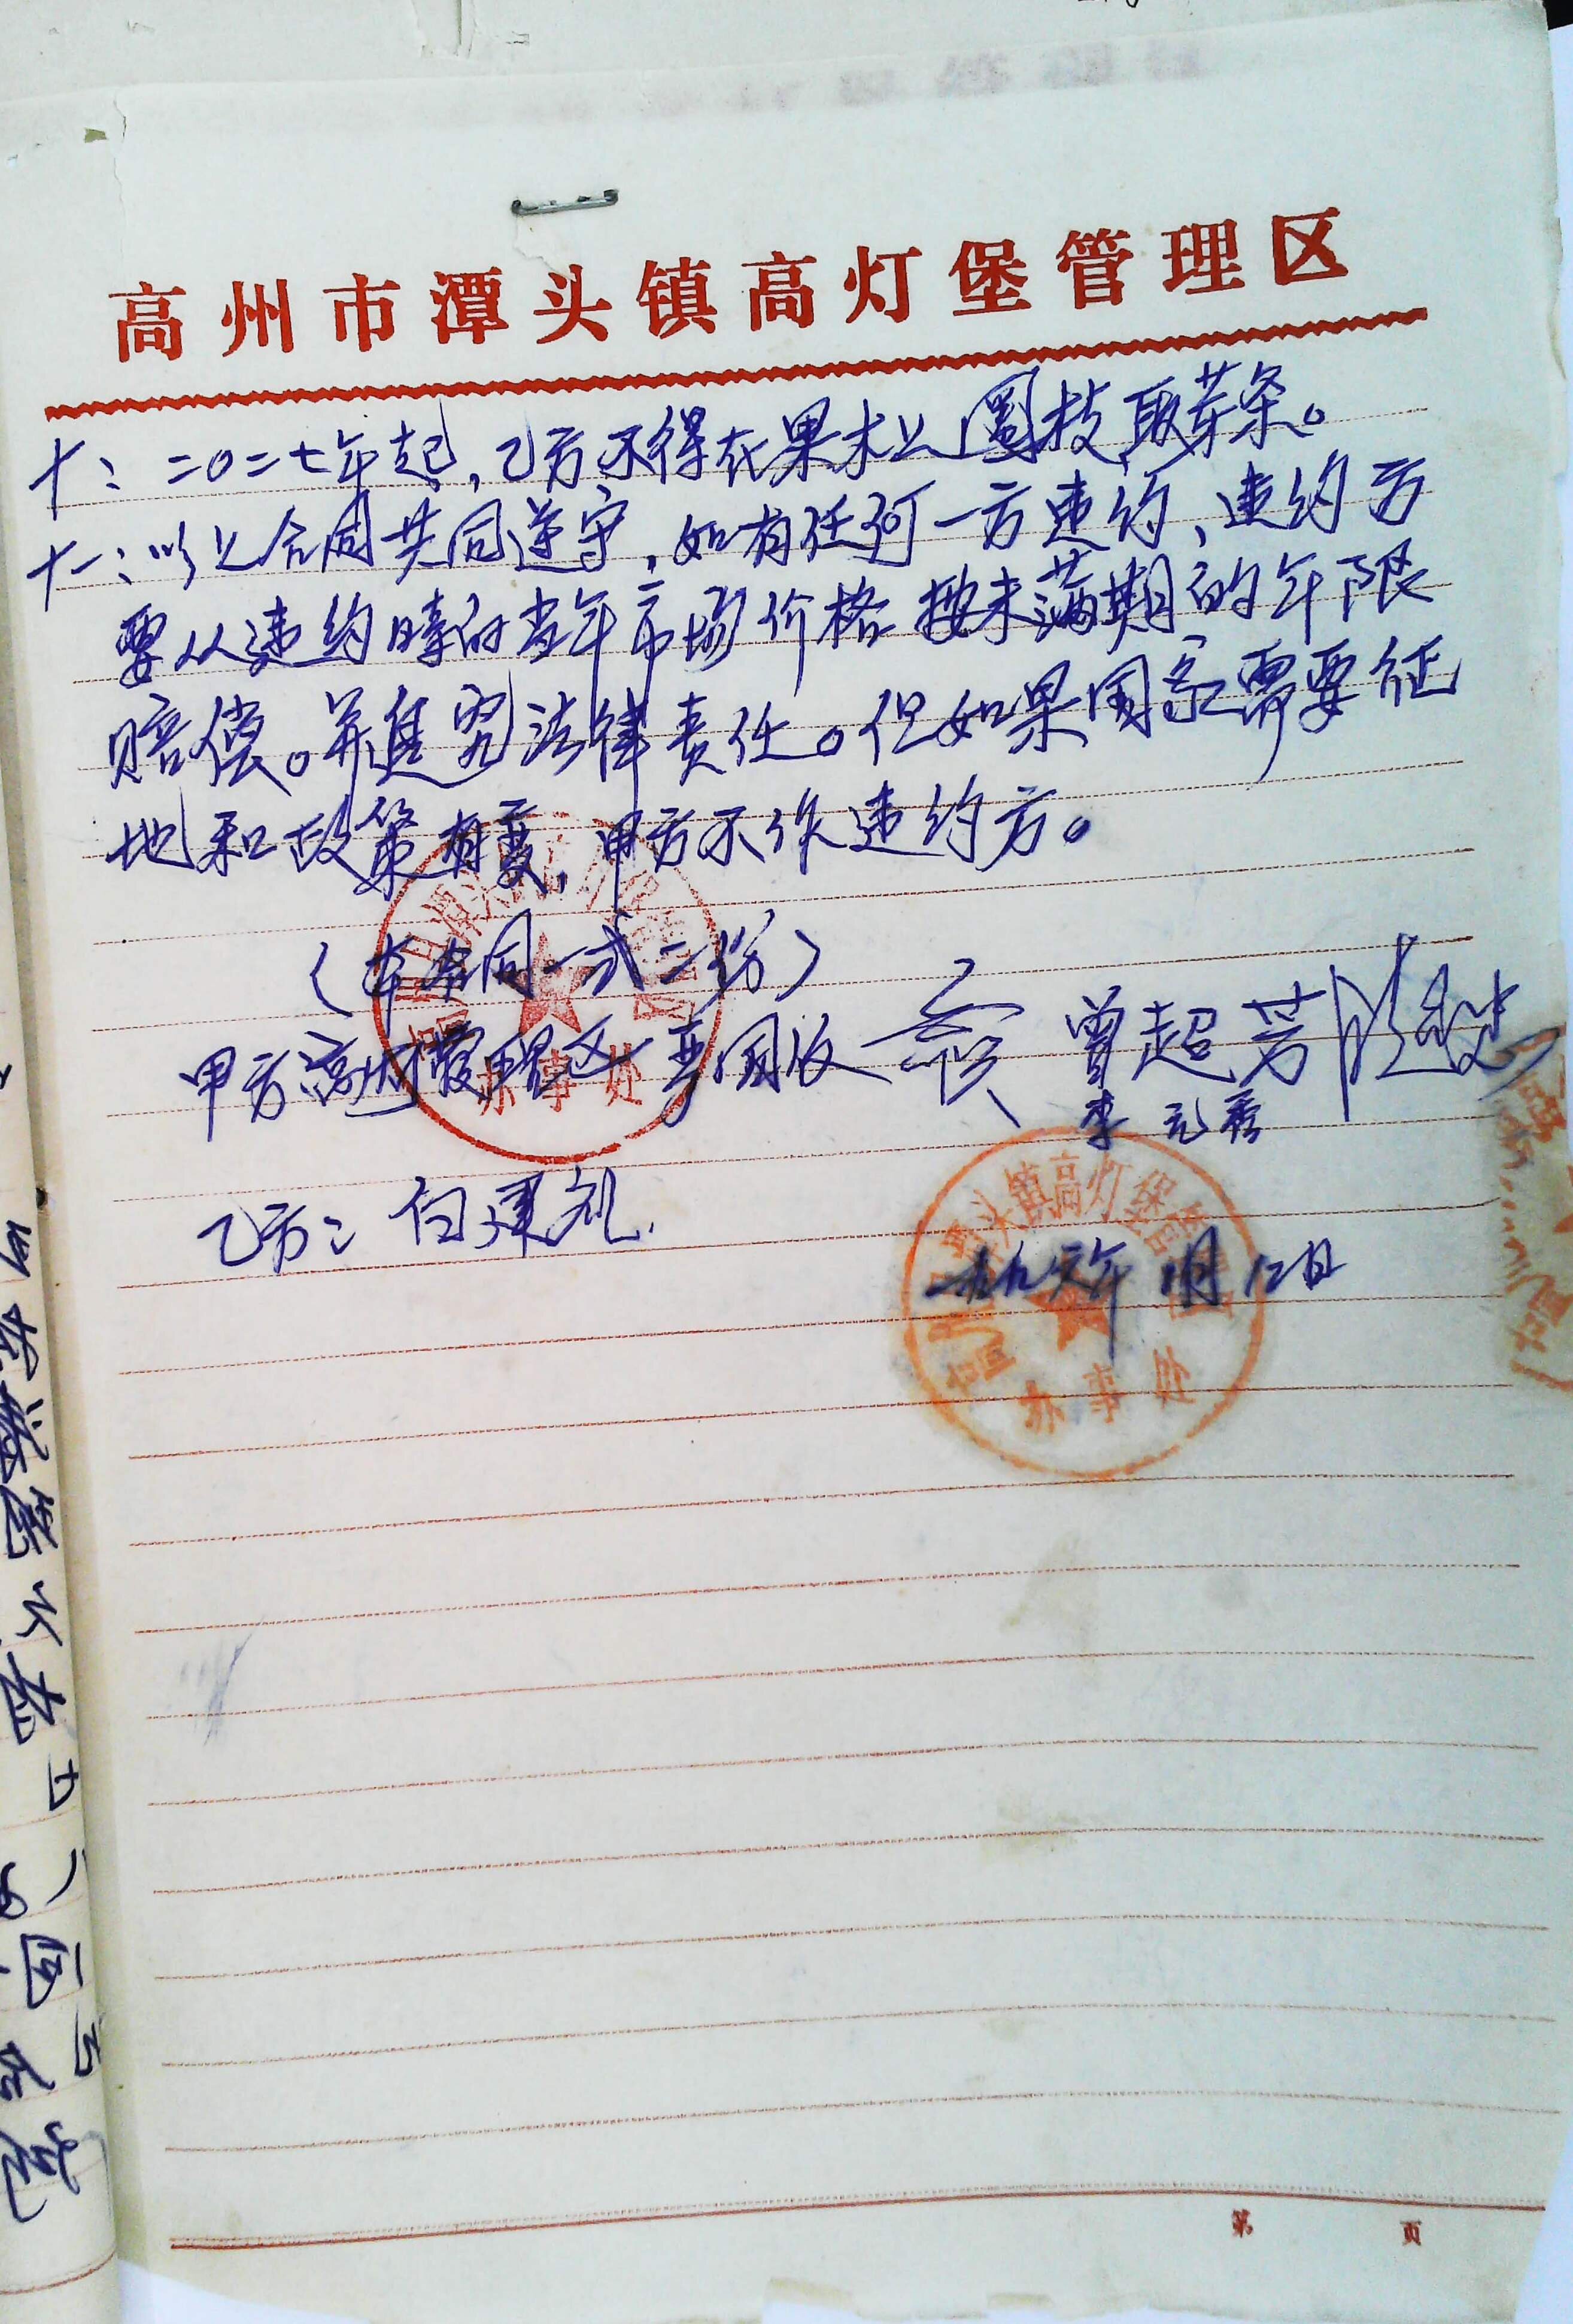 高州市潭头镇高灯堡管理区
十：二〇二七年起，乙方不得在果木上圈枝取芽条。
十一：以上合同共同遵守，如有任何一方违约、违约方
要从违约时的当年市场价格按未满期的年限
赔偿。并追究法律责任。但如果国家需要征
地和政策有变，甲方不作违约方。
（本合同一式二份）
甲方高灯堡管理区 李国 曾超芳
李元秀
乙方：白建礼
潭头镇高灯堡管理区
一九九六年 月12日
办事处
办事处
第 页